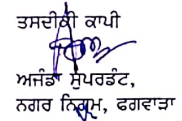 ਤਸਦੀਕੀ ਕਾਪੀ
ਅਜੰਡਾ ਸੁਪਰਡੰਟ,
ਨਗਰ ਨਿਗਮ, ਫਗਵਾੜਾ